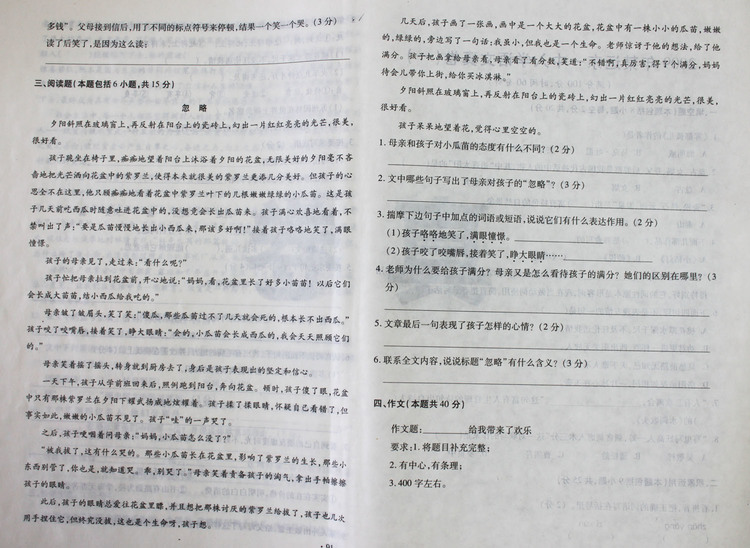 多钱”。父母接到信后,用了不同的标点符号来停顿,结果一个笑一个哭。(3 分)
读了后笑了,是因为这么读:
三、阅读题(本题包括 6 小题,共 15 分)
忽 略
夕阳斜照在玻璃窗上,再反射在阳台上的瓷砖上,幻出一片红红亮亮的光芒,很美,
很好看。
孩子跪坐在椅子里,痴痴地望着阳台上沐浴着夕阳的花盆,无限美好的夕阳毫不吝
啬地把光芒洒向花盆中的紫萝兰,使得本来就很美的紫萝兰更添几分美好。但孩子的心
思全不在这里,他只顾痴地看着花盆中紫萝兰叶下的几根嫩嫩绿绿的小瓜苗。这是孩
子几天前吃西瓜时随意吐进花盆中的,没想竟会长出瓜苗来。孩子满心欢喜地看着,不
禁叫出了声:“要是瓜苗慢慢地长出小西瓜来,那该多好啊!”接着孩子咯咯地笑了,满眼
憧憬。
孩子的母亲听见了,走过来:“看什么呢?”
孩子忙把母亲拉到花盆前,开心地说:“妈妈,看,花盆里长了好多小苗苗!以后它们
会长成大苗苗,结小西瓜给我吃的。”
母亲皱了皱眉头,笑了笑:“傻瓜,那些瓜苗过不了几天就会死的,根本长不出西瓜。”
孩子咬了咬嘴唇,接着笑了,睁大眼睛:“会的,小瓜苗会长成西瓜的,我会天天照顾它们
的。”
母亲笑着摇了摇头,转身就到厨房去了,身后是孩子表现出的坚定和信心。
一天下午,孩子从学前班回来后,照例跑到阳台,奔向花盆。顿时,孩子傻了眼,花盆
中只有那株紫萝兰在夕阳下耀武扬威地炫耀着。孩子揉了揉眼睛,怀疑自己看错了,但
事实如此,嫩嫩的小瓜苗不见了。孩子“哇”的一声哭了。
之后,孩子哽咽着问母亲:“妈妈,小瓜苗怎么没了?”
“被我拔了,这有什么哭的。那些小瓜苗长在花盆里,影响了紫萝兰的生长,那些小
东西别管了,你也是,就知道哭。乖,别哭了。”母亲笑着责备孩子的淘气,拿出手帕擦擦
孩子的眼睛。
此后,孩子的眼睛总爱往花盆里瞟,并且想把那株讨厌的紫萝兰给拔了,孩子也几次
用手捏住它,但终究没拔,这也是个生命呀,孩子想。
91
几天后,孩子画了一张画,画中是一个大大的花盆,花盆中有一株小小的瓜苗,嫩嫩
的,绿绿的,旁边写了一句话:我虽小,但我也是一个生命。老师惊讶于他的想法,给了他
满分。孩子把画拿给母亲看,母亲看了看分数,笑道:“不错啊,真厉害,得了个满分,妈妈
待会儿带你上街,给你买冰淇淋。”
夕阳斜照在玻璃窗上,再反射在阳台上的瓷砖上,幻出一片红红亮亮的光芒,很美,
很好看。
孩子呆呆地望着花,觉得心里空空的。
1. 母亲和孩子对小瓜苗的态度有什么不同?(2 分)
2. 文中哪些句子写出了母亲对孩子的“忽略”?(3 分)
3. 揣摩下边句子中加点的词语或短语,说说它们有什么表达作用。(2 分)
(1)孩子咯咯地笑了,满眼憧憬。
(2)孩子咬了咬嘴唇,接着笑了,睁大眼睛……
4. 老师为什么要给孩子满分?母亲又是怎么看待孩子的满分?她们的区别在哪里?(3
分)
5. 文章最后一句表现了孩子怎样的心情?(2 分)
6. 联系全文内容,说说标题“忽略”有什么含义?(3 分)
四、作文(本题共 40 分)
作文题:________给我带来了欢乐
要求:1. 将题目补充完整;
2. 有中心,有条理;
3. 400 字左右。